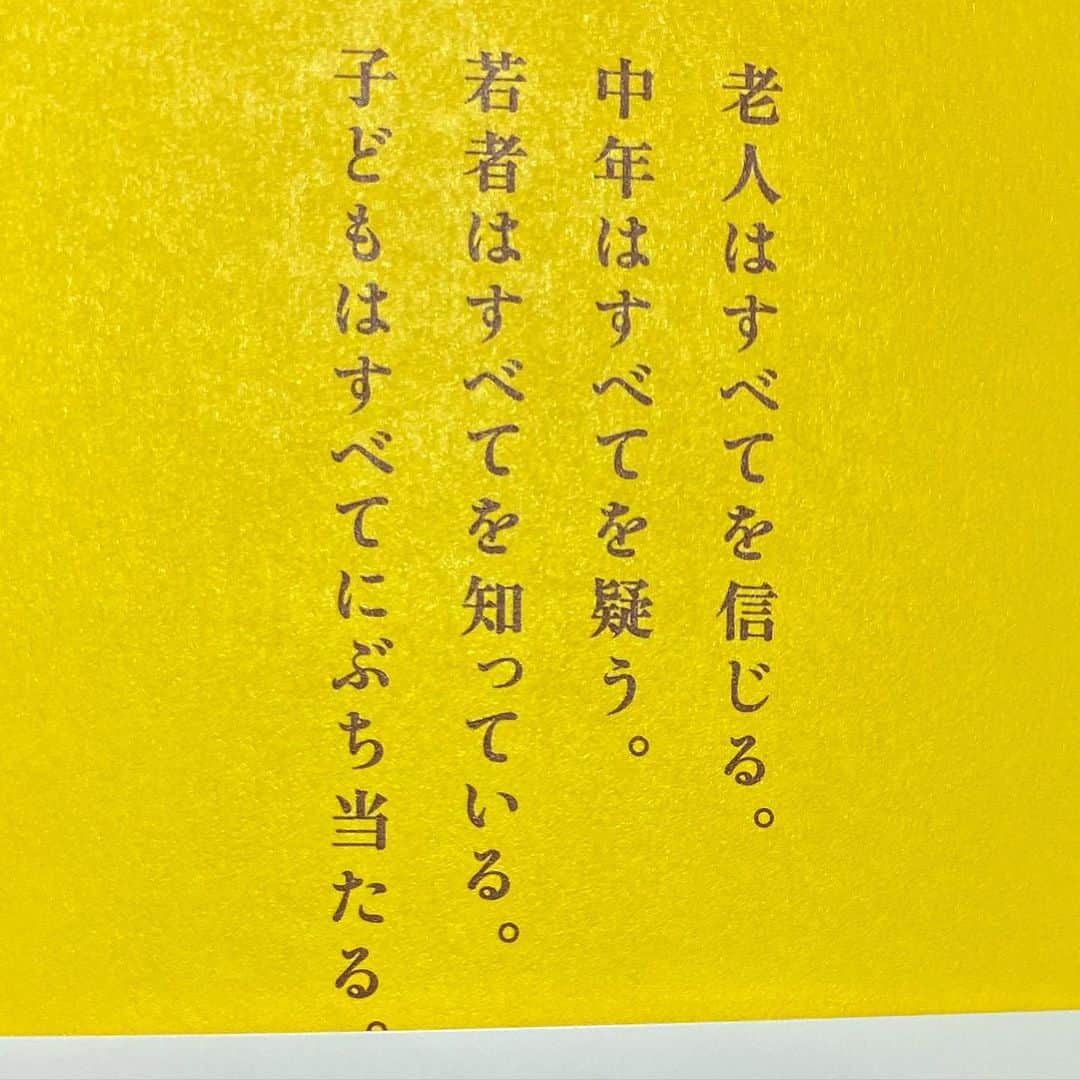 老人はすべてを信じる。
中年はすべてを疑う。
若者はすべてを知っている。
子どもはすべてにぶち当たる。